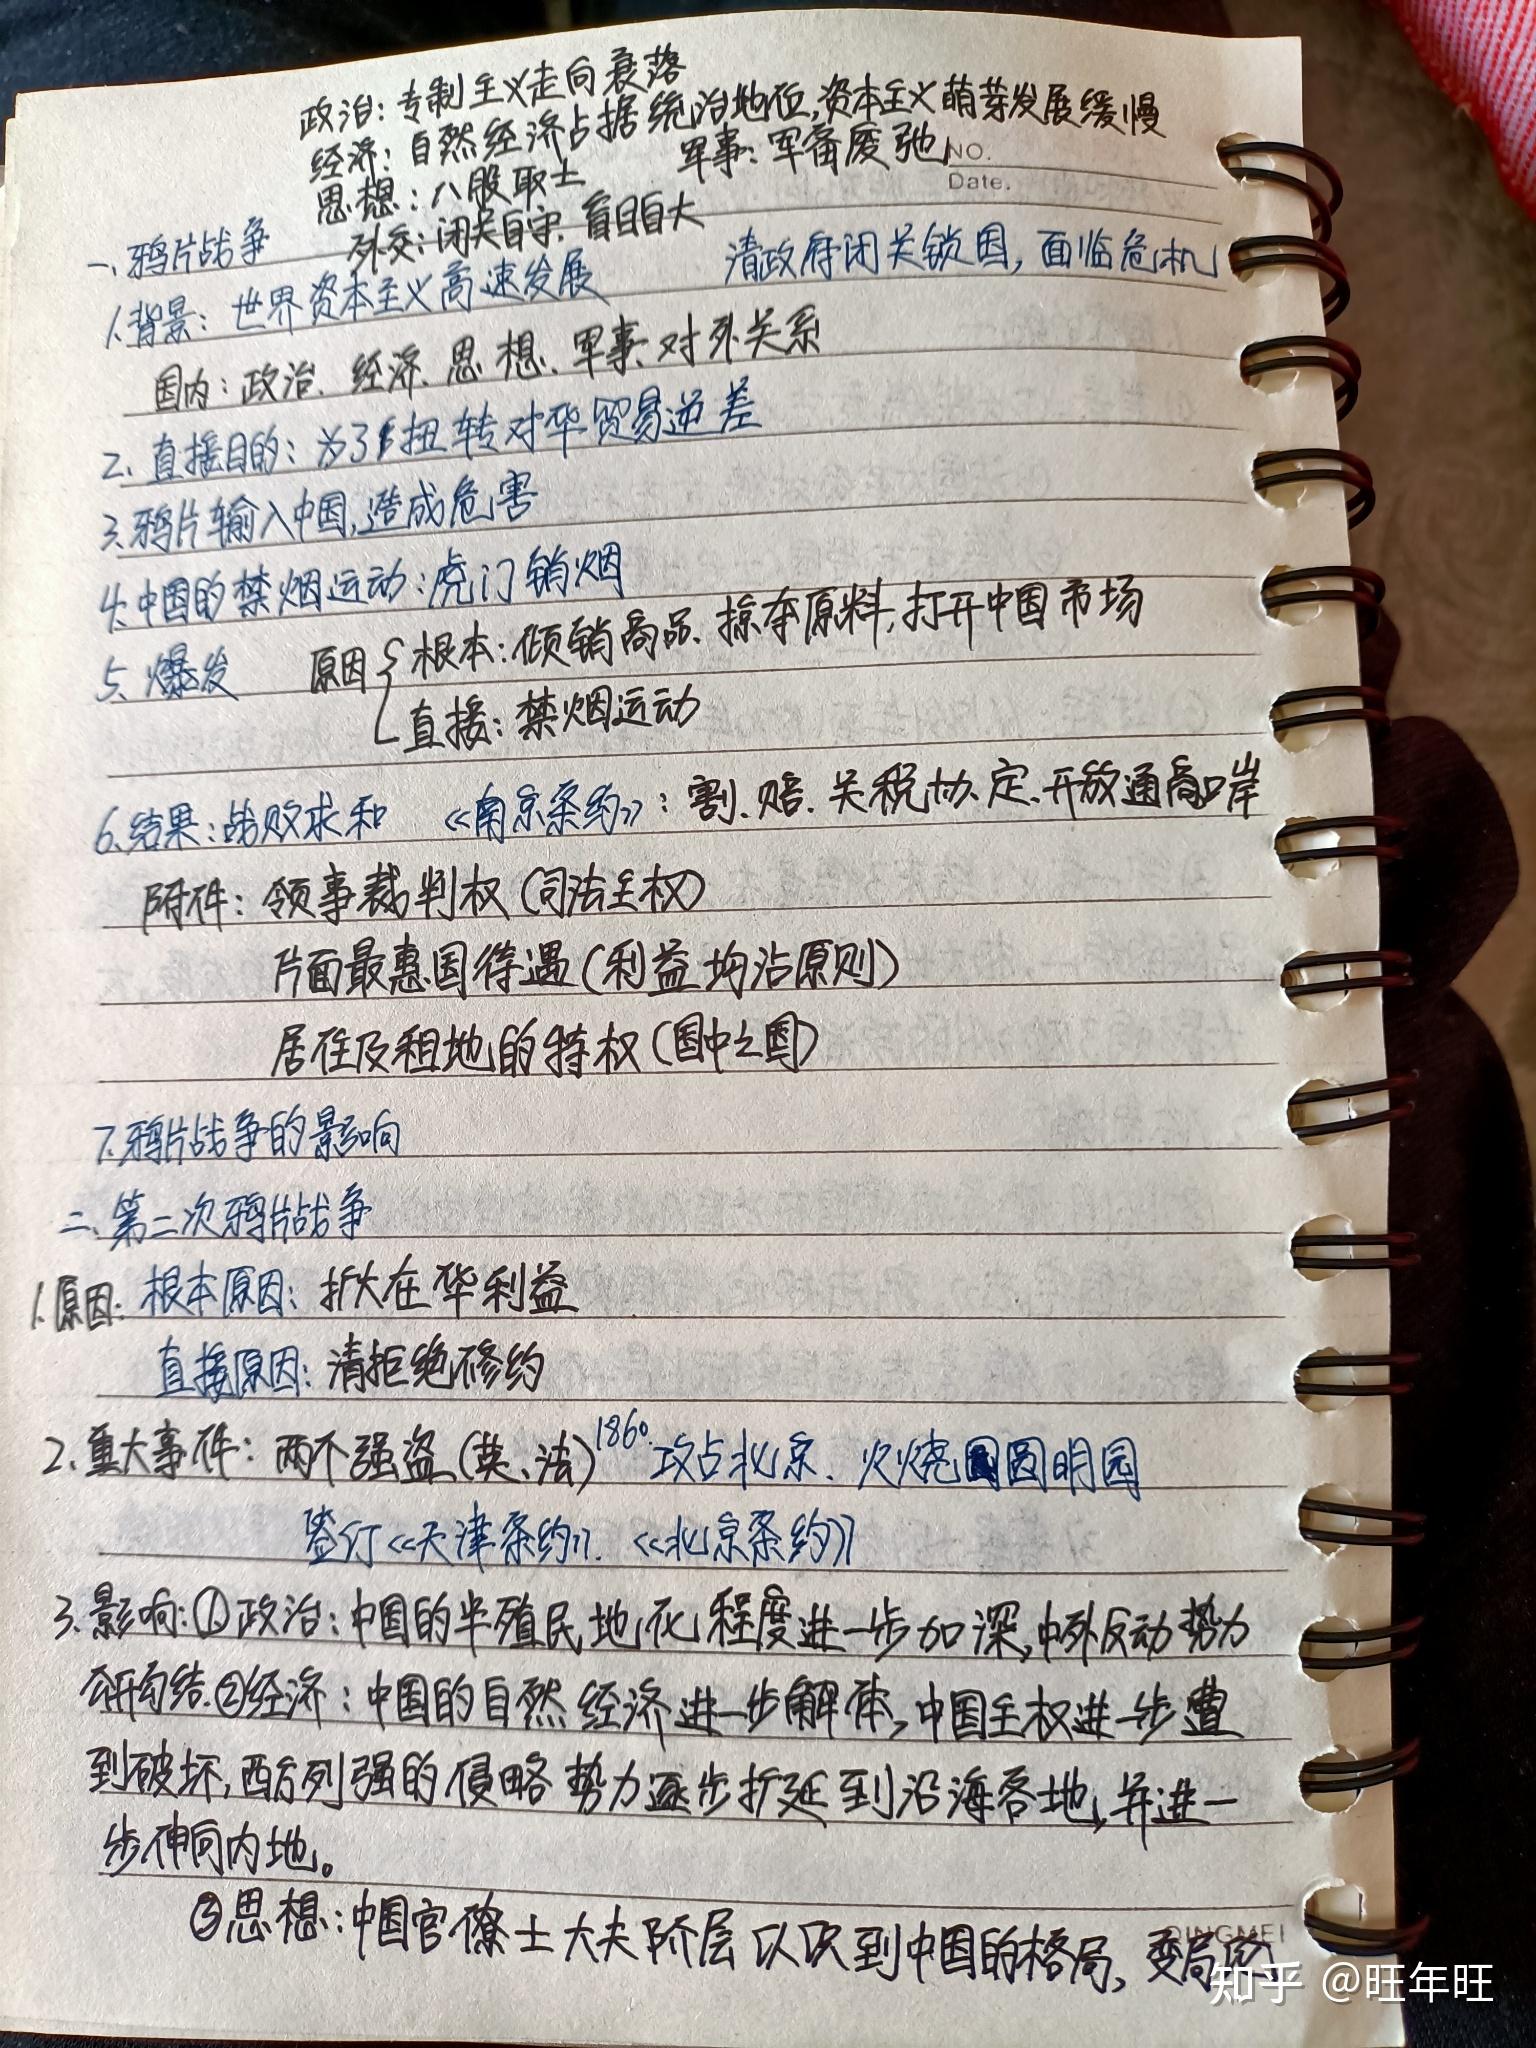 政治:专制主义走向衰落
经济:自然经济占据统治地位,资本主义萌芽发展缓慢
思想:八股取士 军事:军备废弛
NO.
Date.
外交:闭关自守、盲目自大
一、鸦片战争
1.背景:世界资本主义高速发展 清政府闭关锁国,面临危机
国内:政治、经济、思想、军事、对外关系
2.直接目的:为了扭转对华贸易逆差
3.鸦片输入中国,造成危害
4.中国的禁烟运动:虎门销烟
5.爆发 原因 根本:倾销商品、掠夺原料,打开中国市场
直接:禁烟运动
6.结果:战败求和 《南京条约》:割、赔、关税协定、开放通商口岸
附件:领事裁判权(司法主权)
片面最惠国待遇(利益均沾原则)
居住及租地的特权(国中之国)
7.鸦片战争的影响
二、第二次鸦片战争
1.原因:根本原因:扩大在华利益
直接原因:清拒绝修约
2.重大事件:两个强盗(英、法)1860.攻占北京、火烧圆明园
签订《天津条约》、《北京条约》
3.影响:①政治:中国的半殖民地化程度进一步加深,中外反动势力
公开勾结.②经济:中国的自然经济进一步解体,中国主权进一步遭
到破坏,西方列强的侵略势力逐步扩延到沿海各地,并进一
步伸向内地。
③思想:中国官僚士大夫阶层认识到中国的格局,变局
QINGMEI
知乎 @旺年旺